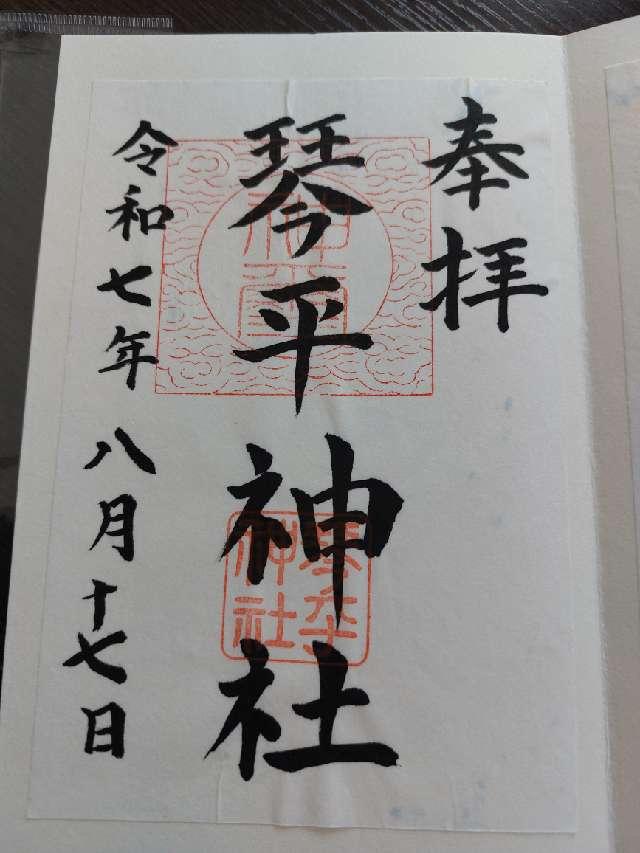 奉拝
琴平神社
令和七年八月十七日
琴平神社